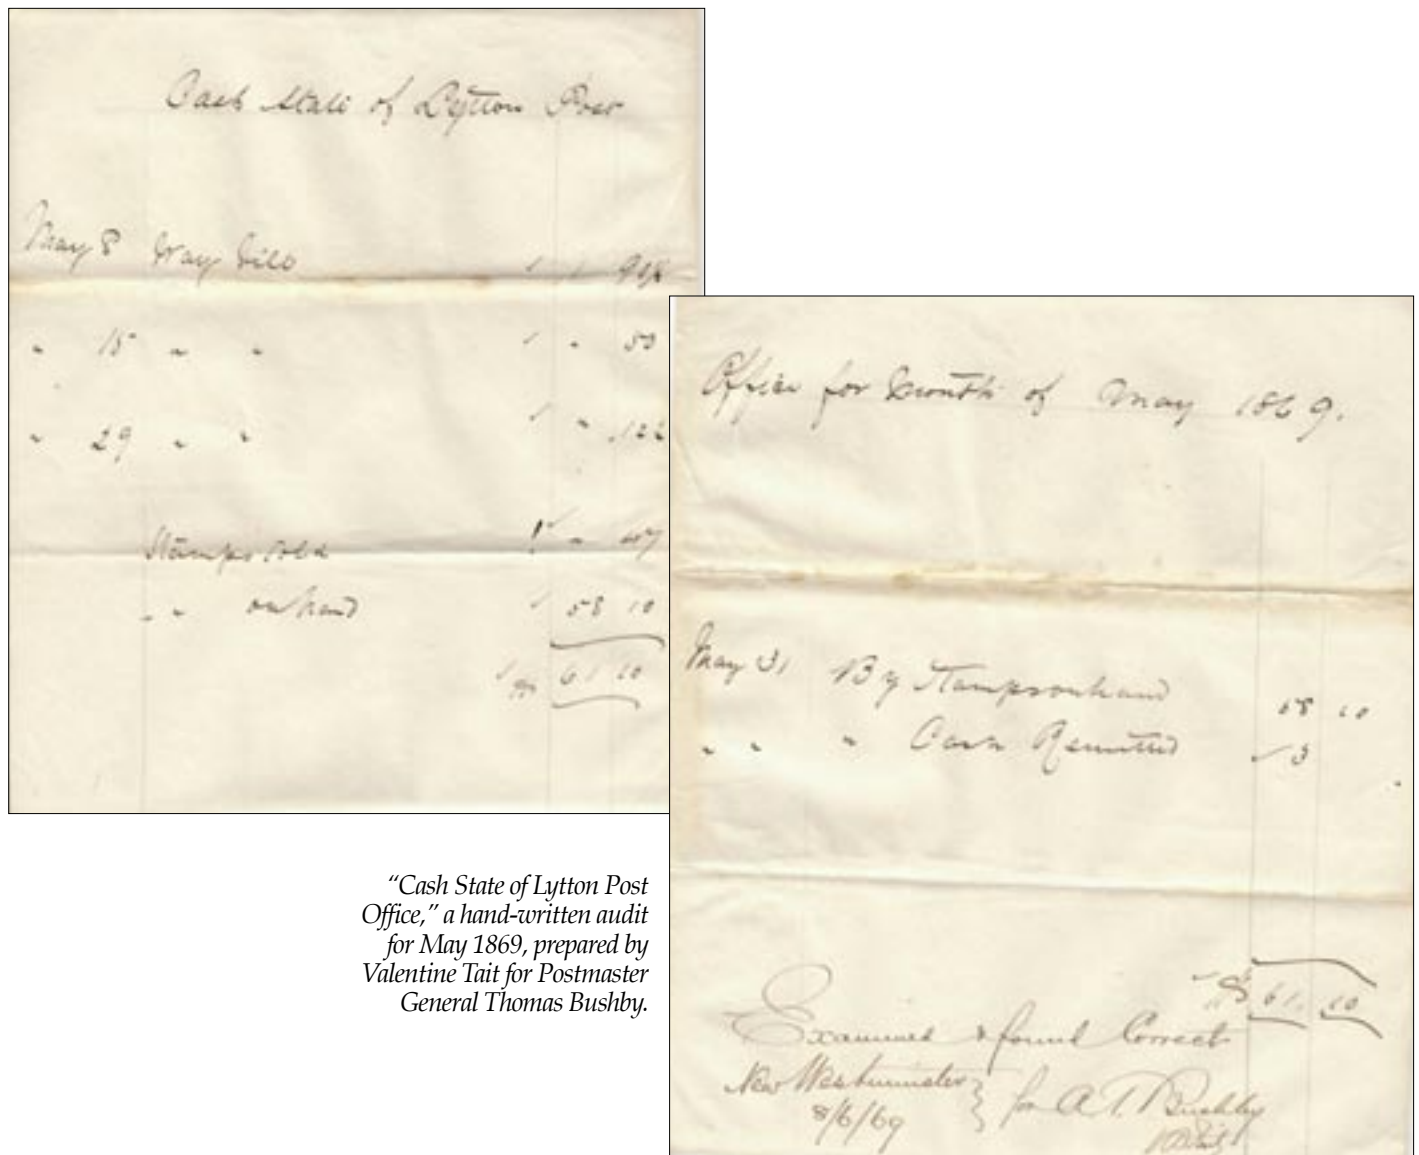 Cash State of Lytton Post
May 8 Way Bill
" 15 " " " 50
" 29 " "
Stamps Sold
" " on hand 58 10
61 10
Office for Month of May 1869.
May 31 By Stamps on hand 58 10
" " " Cash Remitted 3
61. 10
Examined & found Correct
New Westminster } for A. T. Bushby
8/6/69
"Cash State of Lytton Post
Office," a hand-written audit
for May 1869, prepared by
Valentine Tait for Postmaster
General Thomas Bushby.